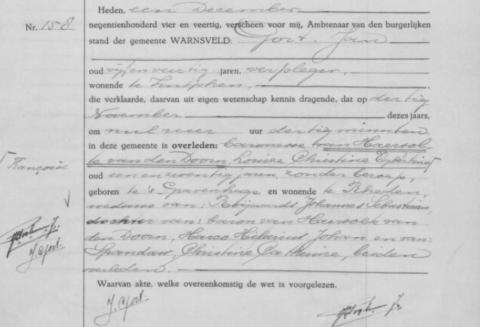 Heden, een December
Nr. 158
negentienhonderd vier en veertig, verscheen voor mij, Ambtenaar van den burgerlijken
stand der gemeente WARNSVELD: Gort, Jan
oud vijfenveertig jaren, verpleger,
wonende te Zutphen,
die verklaarde, daarvan uit eigen wetenschap kennis dragende, dat op dertig
November dezes jaars,
om nul uur uur dertig minuten
in deze gemeente is overleden: baronesse van Heersolte
te van den Doorn, Louise Christine Egbertine
Françoise
oud een en zeventig jaren, zonder beroep,
geboren te 's Gravenhage en wonende te Rheden,
weduwe van: Johannes Christiaan
dochter van: baron van Heersolte van
den Doorn, Hans Hilarius Johan en van:
Spandaw, Christine Catharine, beiden
overleden.
Waarvan akte, welke overeenkomstig de wet is voorgelezen.
J. Gort
J. Gort